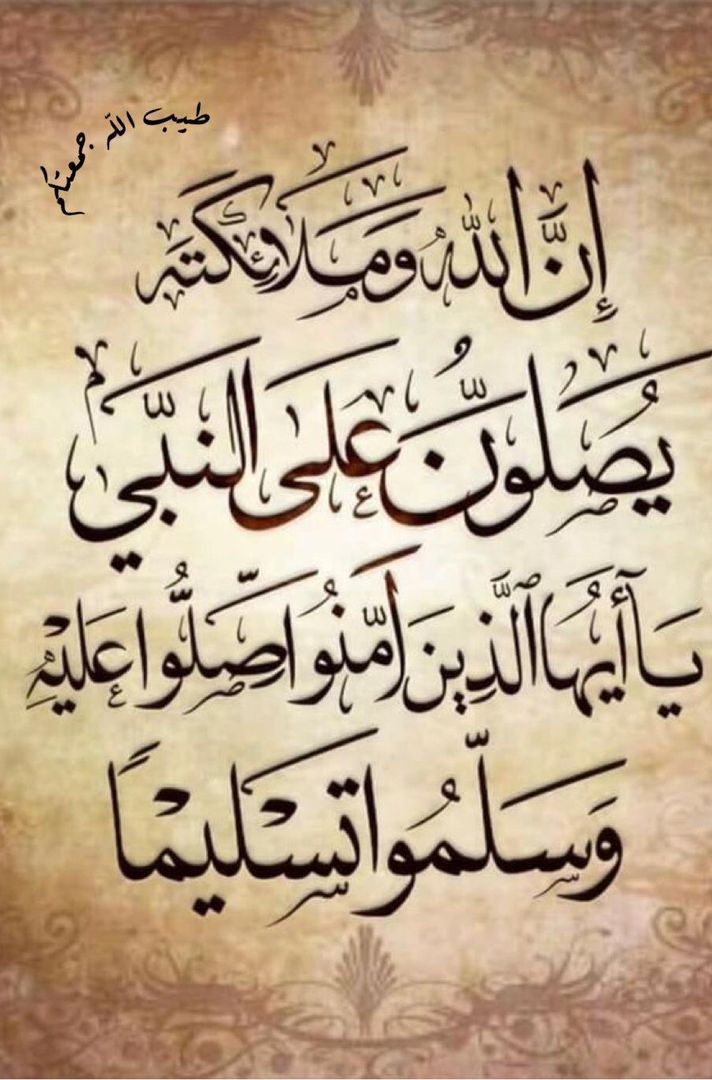 طيب الله جمعتكم
إِنَّ اللهُ وَمَلَائِكَتَه
يُصَلُّونَّ عَلَى النَّبِّي
يَا أَيُّهَا الَّذِينَ آمَنُوا صَلُّوا عَلَيْهِ
وَسَلِّمُوا تَسْلِيمًا